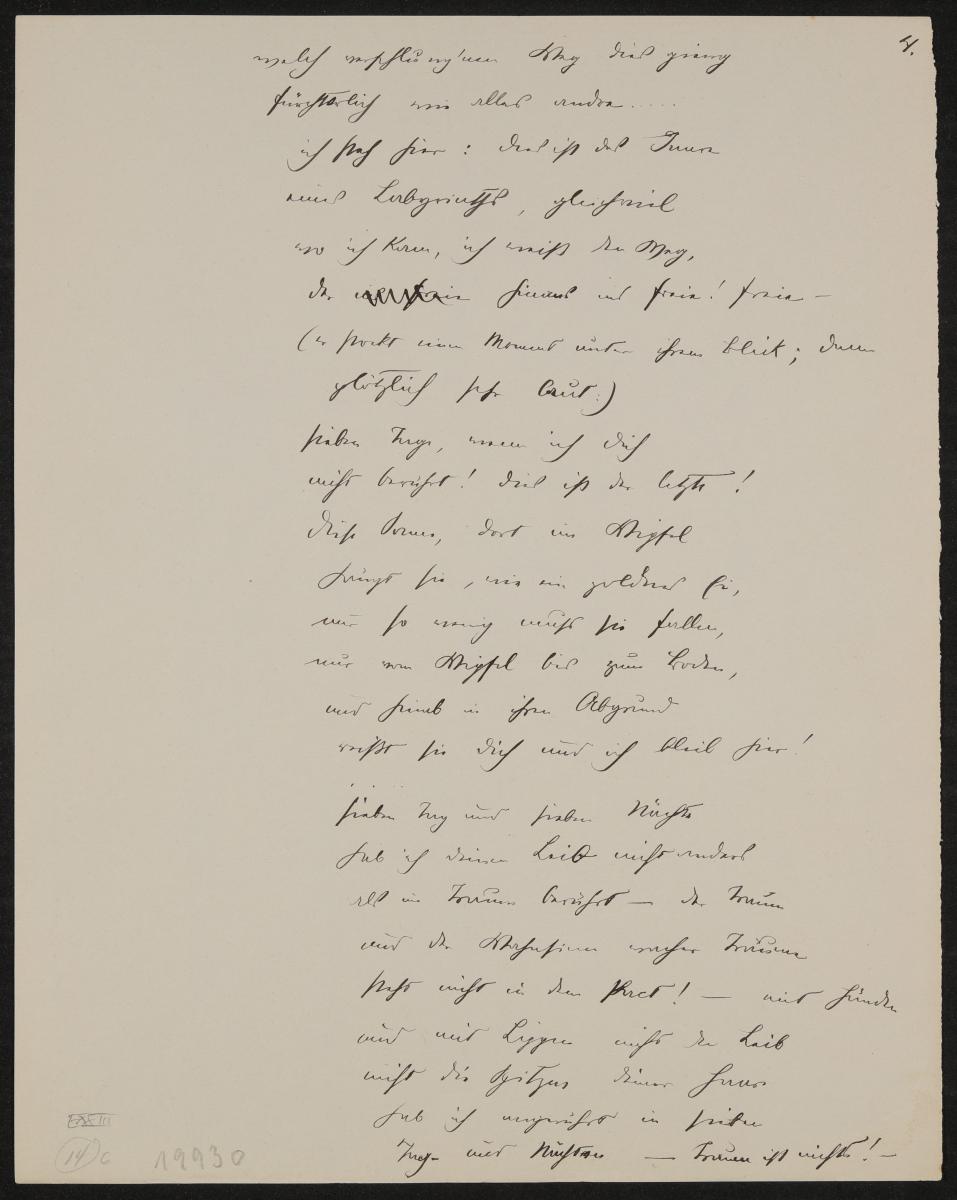 4.
welch verschlung'nen Weg dies gieng
fürchterlich wie alles andre.....
ich steh hier: dies ist das Innre
eines Labyrinths, gleichviel
wo ich kam, ich weiß den Weg,
der hinaus ins freie! freie –
(er stockt einen Moment unter ihrem Blick; dann
plötzlich sehr laut:)
sieben Tage, wenn ich dich
nicht berührt! dies ist der letzte!
diese Sonne, dort im Wipfel
hängt sie, wie ein goldnes Ei,
nur so wenig muss sie fallen,
nur vom Wipfel bis zum Boden,
und hinab in ihren Abgrund
reißt sie dich und ich bleib hier!
sieben Tag und sieben Nächte
hab ich deinen Leib nicht anders
als im Traum berührt – der Traum
und der Wahnsinn wacher Träume
steht nicht in dem Pact! – mit Händen
und mit Lippen nicht den Leib
nicht die Spitzen deiner Haare
hab ich angerührt in sieben
Tag- und Nächten – Traum ist nichts! –
EXXIII
14 c
19930